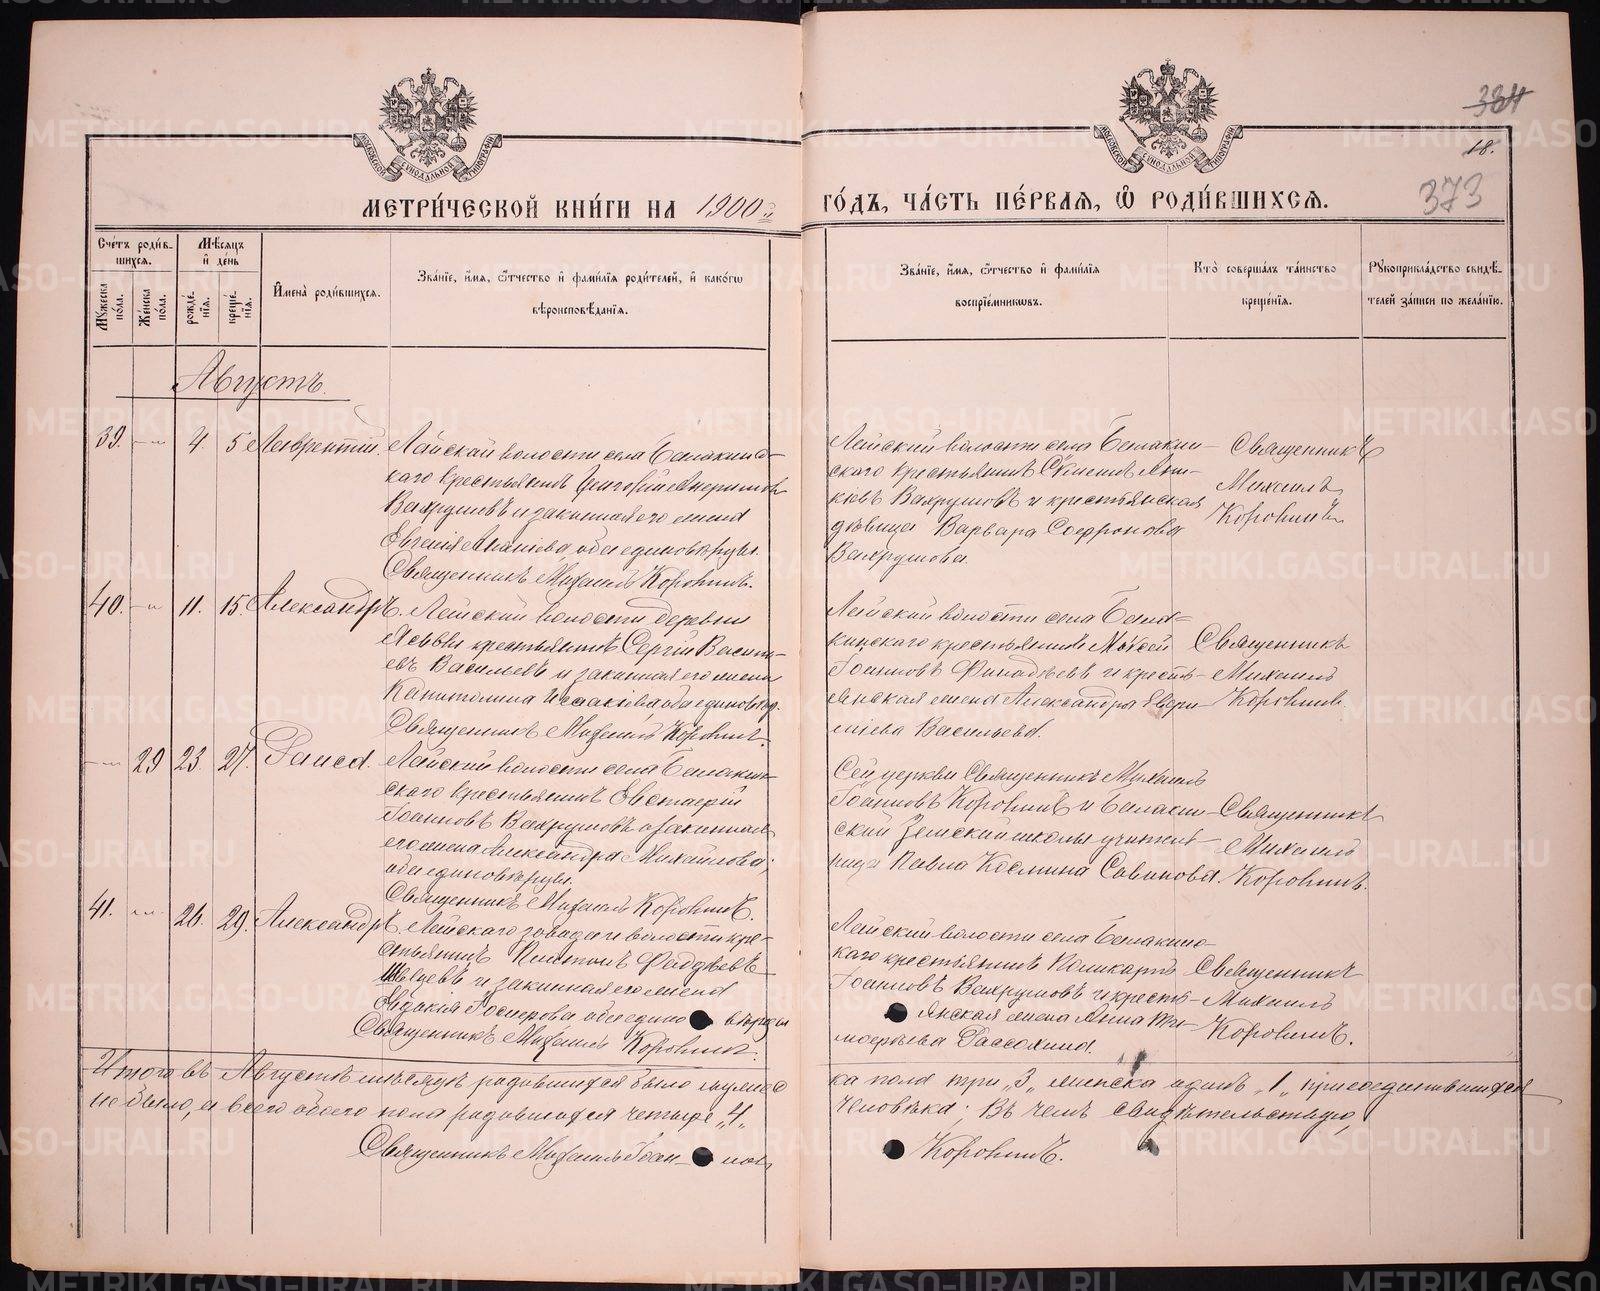 384
18.
373
МОСКОВСКОЙ СѴНОДАЛЬНОЙ ТИПОГРАФІИ
МЕТРИ́ЧЕСКОЙ КНИ́ГИ НА 1900й ГО́ДЪ, ЧА́СТЬ ПЕ́РВАЯ, Ѡ҆ РОДИ́ВШИХСЯ.
Сче́тъ роди́в-
шихся.
Мꙋжеска по́ла.
Же́нска по́ла.
Мѣ́сяцъ
и҆ де́нь
рожде́-
нія.
креще́-
нія.
И҆мена̀ роди́вшихся.
Зва́ніе, и҆́мя, ѻ҆́тчество и҆ фами́лія роди́телей, и҆ како́гѡ
вѣроисповѣ́данія.
Зва́ніе, и҆́мя, ѻ҆́тчество и҆ фами́лія
воспріе́мниковъ.
Кто̀ соверша́лъ та́инство
креще́нія.
Рꙋкоприкла́дство свидѣ́-
телей за́писи по жела́нію.
Августъ.
39. 4. 5 Лаврентій. Лайской волости села Балакинс-
каго крестьянинъ Григорій
Вахрушевъ и законная его жена
Евгенія обаединовѣрцы.
Священникъ Михаилъ Коровинъ.
Лайской волости села Балакин-
скаго крестьянинъ
Вахрушовъ и крестьянская
дѣвица Варвара Софронова
Вахрушова.
Священникъ
Михаилъ
Коровинъ
40. 11. 15. Александръ. Лайской волости деревни
крестьянинъ Сергій Василь-
евъ Васильевъ и законная его жена
Капитолина обаединовѣр.
Священникъ Михаилъ Коровинъ.
Лайской волости села Бала-
кинскаго крестьянинъ
Іоанновъ и кресть-
янская жена Александра
Васильева.
Священникъ
Михаилъ
Коровинъ.
29 23. 27. Раиса. Лайской волости села Балакин-
скаго крестьянинъ Евстафій
Іоанновъ Вахрушовъ и законная
его жена Александра Михайлова;
оба единовѣрцы.
Священникъ Михаилъ Коровинъ.
Сей церкви Священникъ Михаилъ
Іоанновъ Коровинъ и Балакин-
ской Земской школы учитель-
ница Павла Космина Савинова.
Священникъ
Михаилъ
Коровинъ.
41. 26. 29. Александръ. Лайскаго завода и волости кре-
стьянинъ Платонъ Фаддѣевъ
Швецевъ и законная его жена
Евдокія оба едино вѣрцы
Священникъ Михаилъ Коровинъ.
Лайской волости села Балакинс-
каго крестьянинъ Поликарпъ
Іоанновъ Вахрушовъ и кресть-
янская жена Анна Ти-
моѳеева Рассохина.
Священникъ
Михаилъ
Коровинъ.
Итого въ Августѣ мѣсяцѣ родившихся было мужес ка пола три „3„ женска одинъ „1„ присоединившихся
не было, а всего обоего пола родившихся четыре „4„ человѣка; Въ чемъ свидѣтельствую,
Священникъ Михаилъ Іоан- новъ Коровинъ.
METRIKI.GASO-URAL.RU